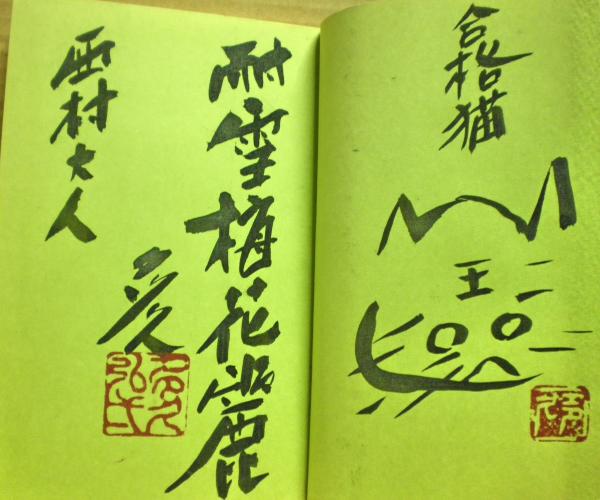 合格猫
王
耐雪梅花麗
西村大人